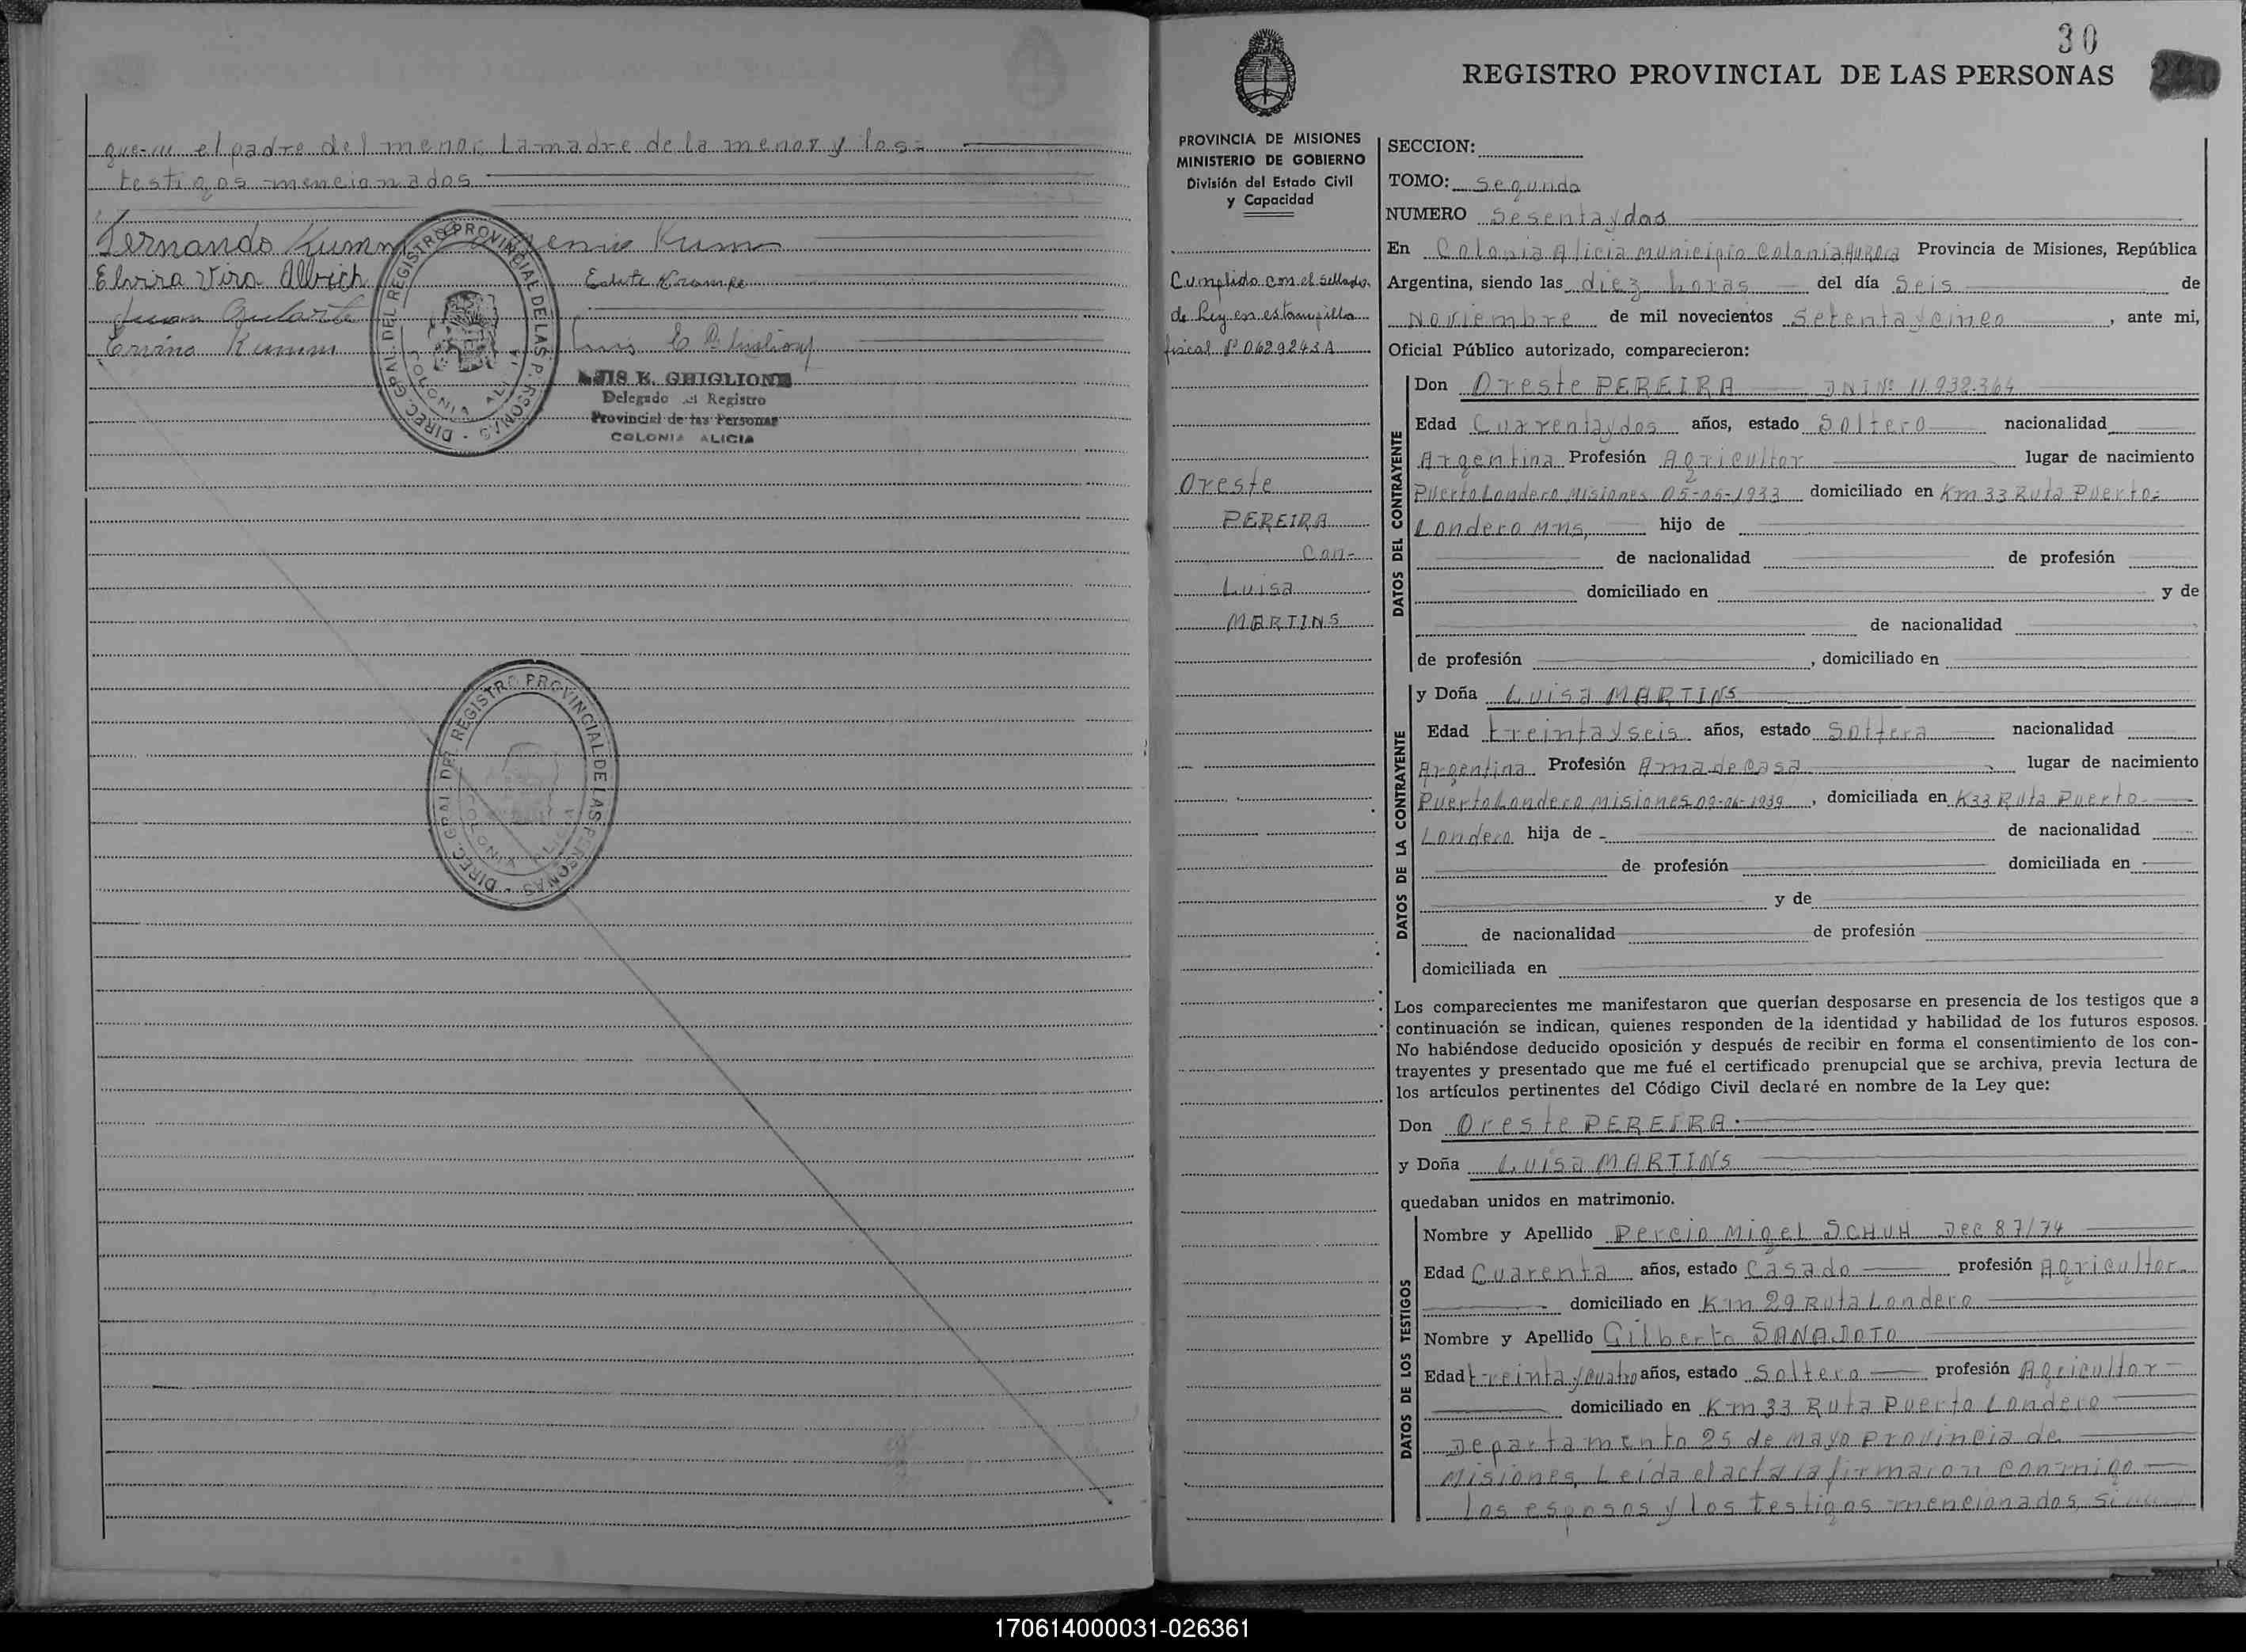 que el padre del menor, La madre de la menor y los=
testigos mencionados
Fernando Kumm
Elvira Vira Albrich
Juan
Ervino Kumm
DIREC. GRAL. DEL REGISTRO PROVINCIAL DE LAS PERSONAS
COLONIA ALICIA
LUIS E. GHIGLIONE
Delegado del Registro
Provincial de las Personas
COLONIA ALICIA
DIREC. GRAL. DEL REGISTRO PROVINCIAL DE LAS PERSONAS
COLONIA ALICIA
30
REGISTRO PROVINCIAL DE LAS PERSONAS
PROVINCIA DE MISIONES
MINISTERIO DE GOBIERNO
División del Estado Civil
y Capacidad
Cumplido con el sellado
de Ley en estampilla
fiscal Nº 0629243 A
Oreste
PEREIRA
Con-
Luisa
MARTINS
SECCION:
TOMO: Segundo
NUMERO Sesentaydos
En Colonia Alicia Municipio Colonia Aurora Provincia de Misiones, República
Argentina, siendo las diez horas del día Seis de
Noviembre de mil novecientos Setentaycinco, ante mi,
Oficial Público autorizado, comparecieron:
DATOS DEL CONTRAYENTE
Don Oreste PEREIRA DNI Nº 11.932.364
Edad Cuarentaydos años, estado Soltero nacionalidad
Argentina Profesión Agricultor lugar de nacimiento
Puerto Londero Misiones 05-05-1933 domiciliado en Km 33 Ruta Puerto=
Londero Mns, hijo de
de nacionalidad de profesión
domiciliado en y de
de nacionalidad
de profesión , domiciliado en
DATOS DE LA CONTRAYENTE
y Doña Luisa MARTINS
Edad treintayseis años, estado Soltera nacionalidad
Argentina Profesión Ama de Casa lugar de nacimiento
Puerto Londero Misiones 09-06-1939, domiciliada en K33 Ruta Puerto
Londero hija de
de nacionalidad
de profesión domiciliada en
y de
de nacionalidad de profesión
domiciliada en
Los comparecientes me manifestaron que querían desposarse en presencia de los testigos que a
continuación se indican, quienes responden de la identidad y habilidad de los futuros esposos.
No habiéndose deducido oposición y después de recibir en forma el consentimiento de los con-
trayentes y presentado que me fué el certificado prenupcial que se archiva, previa lectura de
los artículos pertinentes del Código Civil declaré en nombre de la Ley que:
Don Oreste PEREIRA
y Doña Luisa MARTINS
quedaban unidos en matrimonio.
DATOS DE LOS TESTIGOS
Nombre y Apellido Percio Migel SCHUH Dec 87/74
Edad Cuarenta años, estado Casado profesión Agricultor
domiciliado en Km 29 Ruta Londero
Nombre y Apellido Gilberto
Edad treintaycuatro años, estado Soltero profesión Agricultor
domiciliado en Km 33 Ruta Puerto Londero
Departamento 25 de Mayo Provincia de
Misiones, Leída el acta la firmaron conmigo
los esposos y los testigos mencionados
170614000031-026361